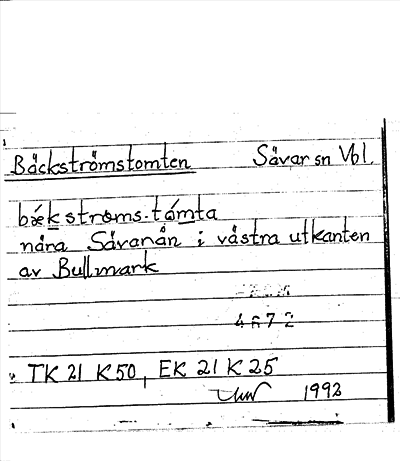 Bäckströmstomten Sävar sn Vbl.
bǽkstroms-tómta
nära Sävarån i västra utkanten
av Bullmark
TK 21 K50, EK 21 K 25
1992